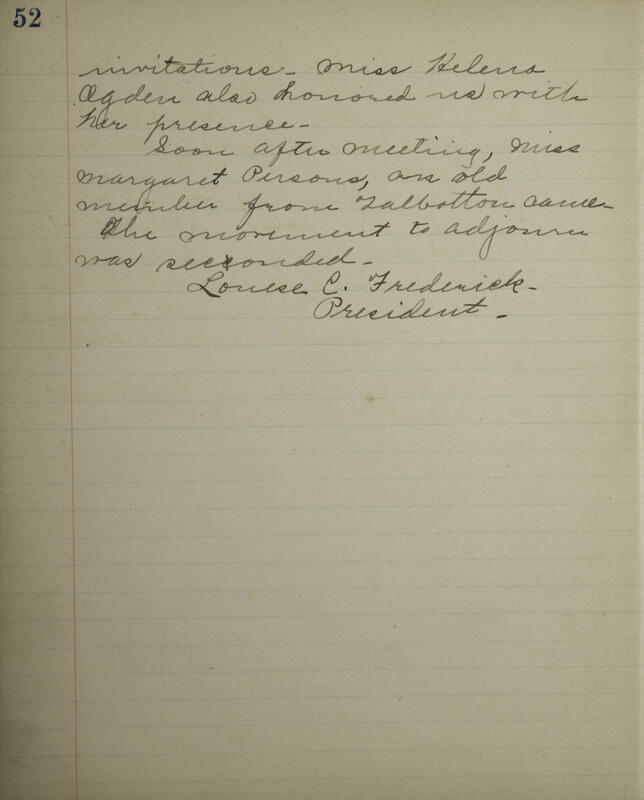 52
invitations - Miss Helena
Ogden also honored us with
her presence -
Soon after meeting, Miss
Margaret Persons, an old
member from Talbotton came -
The movement to adjourn
was secxonded -
Louese C. Frederick -
President -